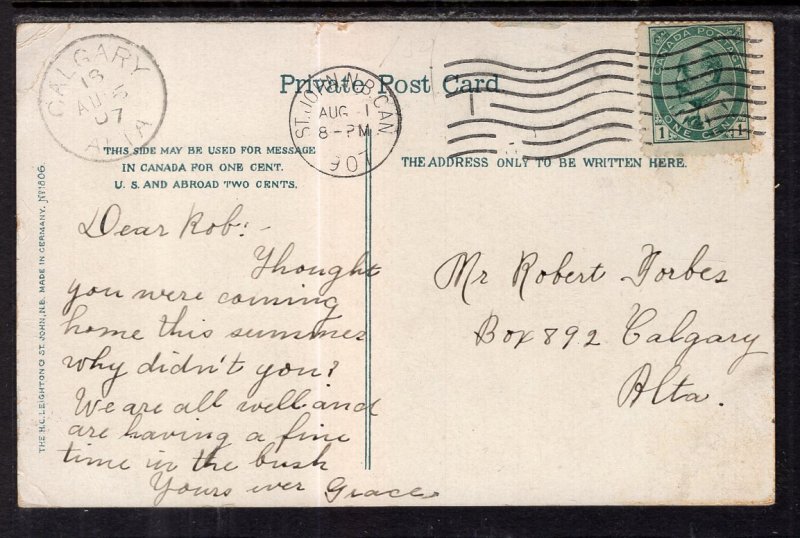 Private Post Card
CALGARY
AU 6
07
ALTA
ST. JOHN. N.B. CAN.
AUG 1
8-PM
1907
CANADA POSTAGE
1 ONE CENT 1
THIS SIDE MAY BE USED FOR MESSAGE
IN CANADA FOR ONE CENT.
U. S. AND ABROAD TWO CENTS.
THE ADDRESS ONLY TO BE WRITTEN HERE.
THE H.C. LEIGHTON Co ST. JOHN, N.B. MADE IN GERMANY. No 1806.
Dear Rob:-
Thought
you were coming
home this summer
why didn't you?
We are all well and
are having a fine
time in the bush
Yours ever Grace
Mr Robert Forbes
Box 892 Calgary
Alta.